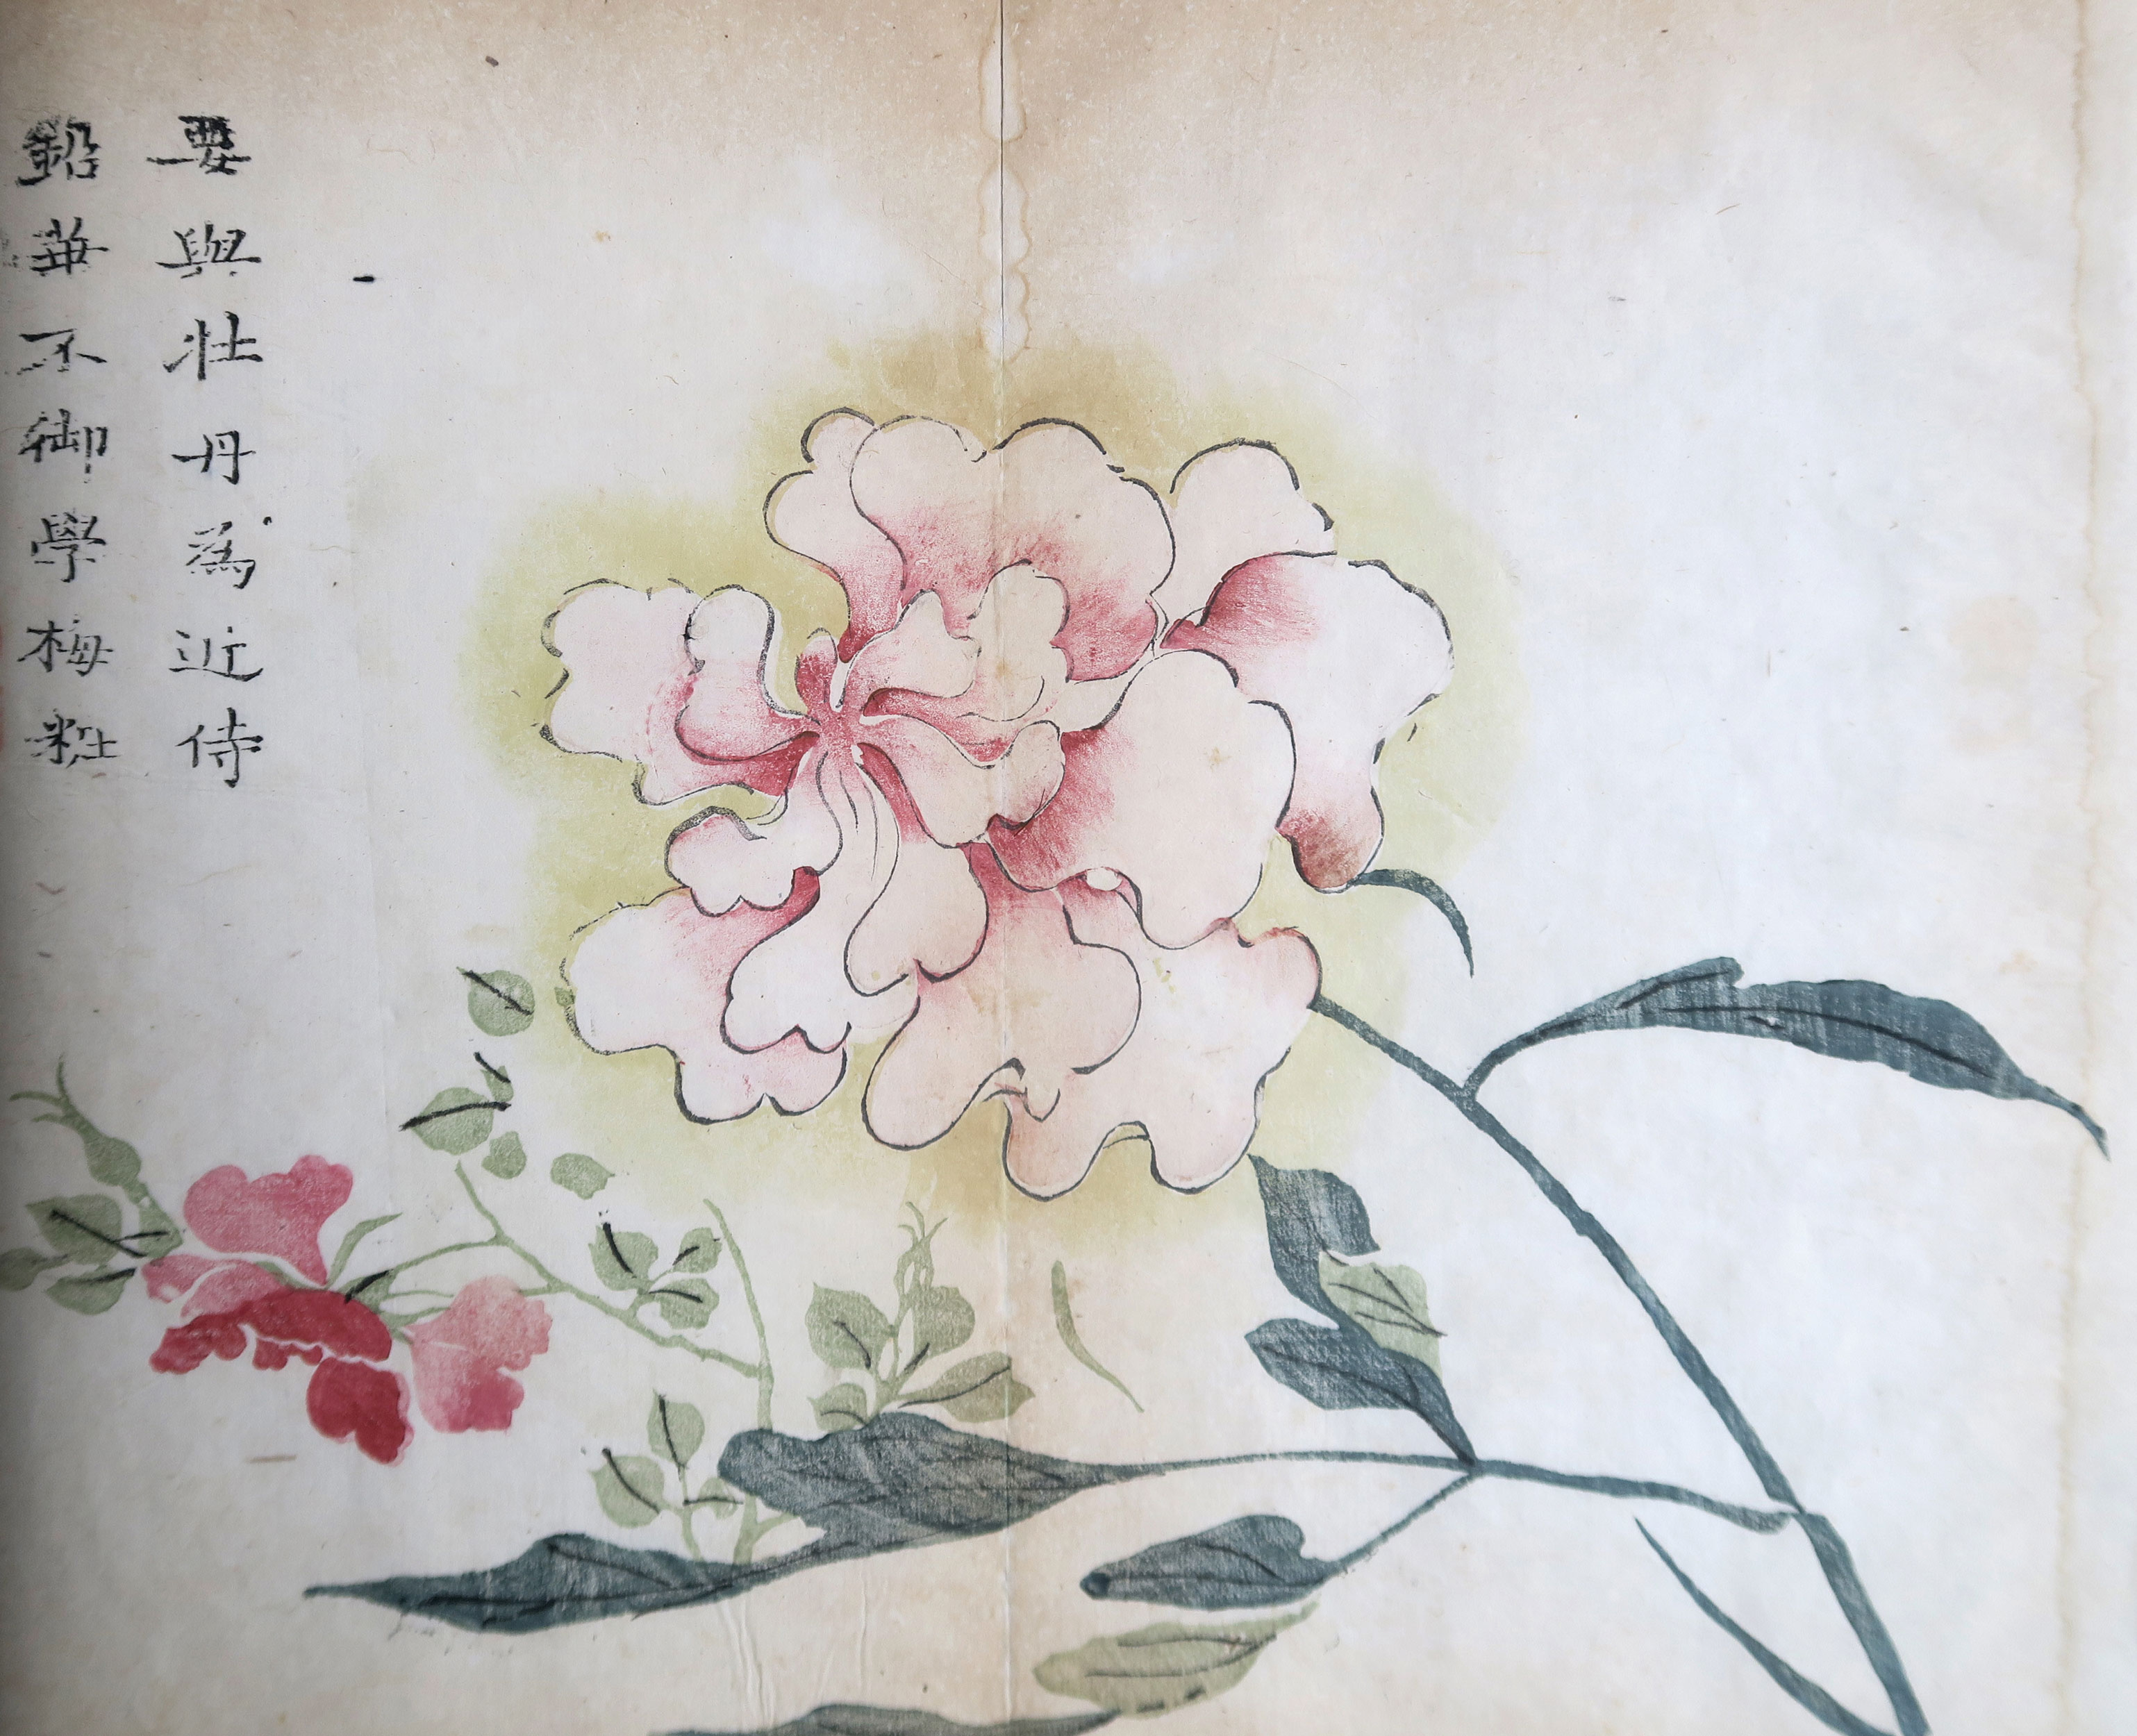 要與壮丹為近侍
鉛華不御學梅粧